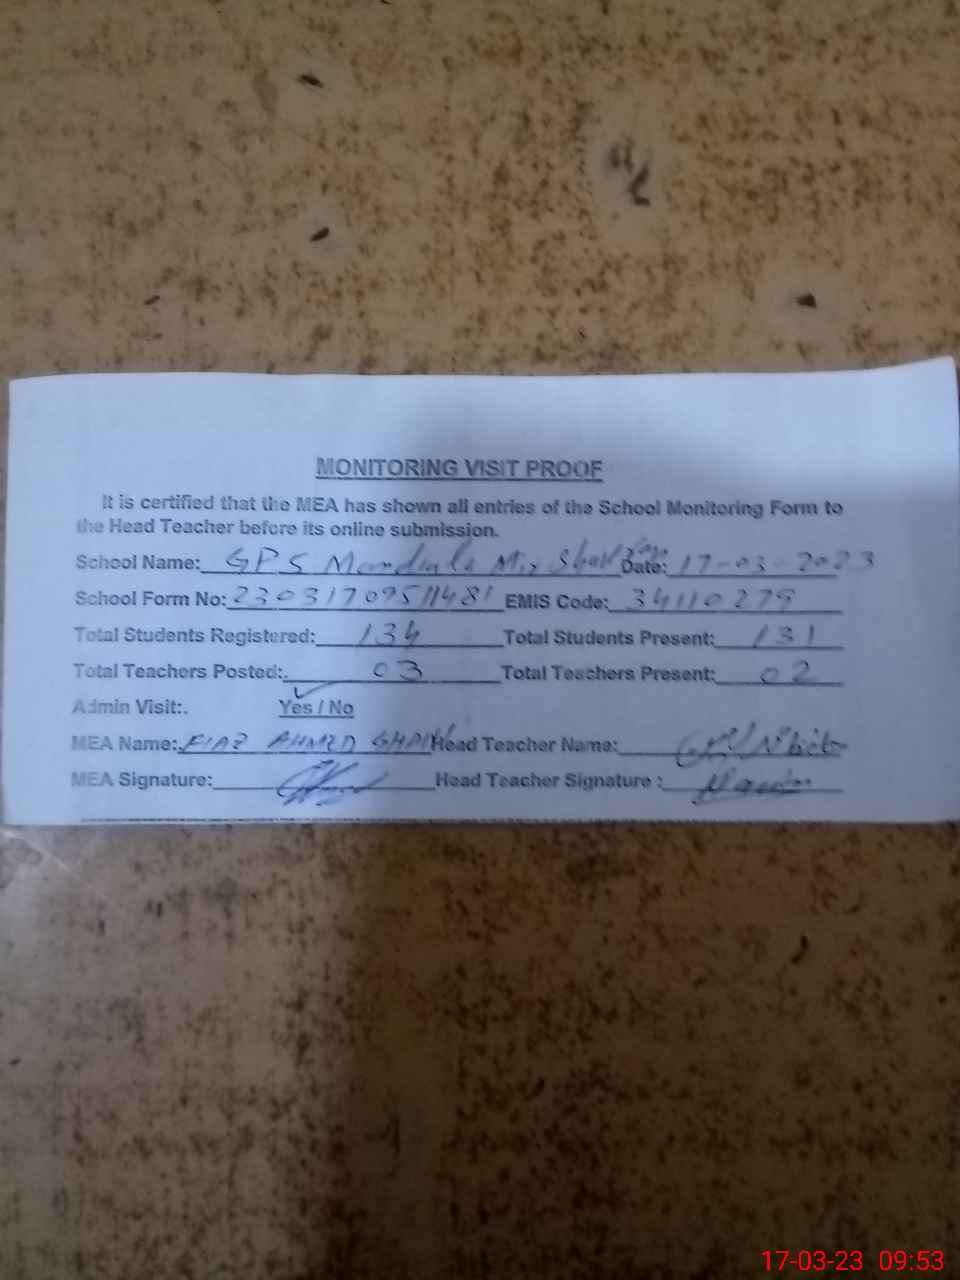 MONITORING VISIT PROOF
It is certified that the MEA has shown all entries of the School Monitoring Form to
the Head Teacher before its online submission.
School Name: GPS Mandiala Mir Shakaran Date: 17-03-2023
School Form No: 23031709511481 EMIS Code: 34110279
Total Students Registered: 134 Total Students Present: 131
Total Teachers Posted: 03 Total Teachers Present: 02
Admin Visit:. Yes / No
MEA Name: FIAZ AHMED GHANI Head Teacher Name:
MEA Signature: Head Teacher Signature :
17-03-23 09:53